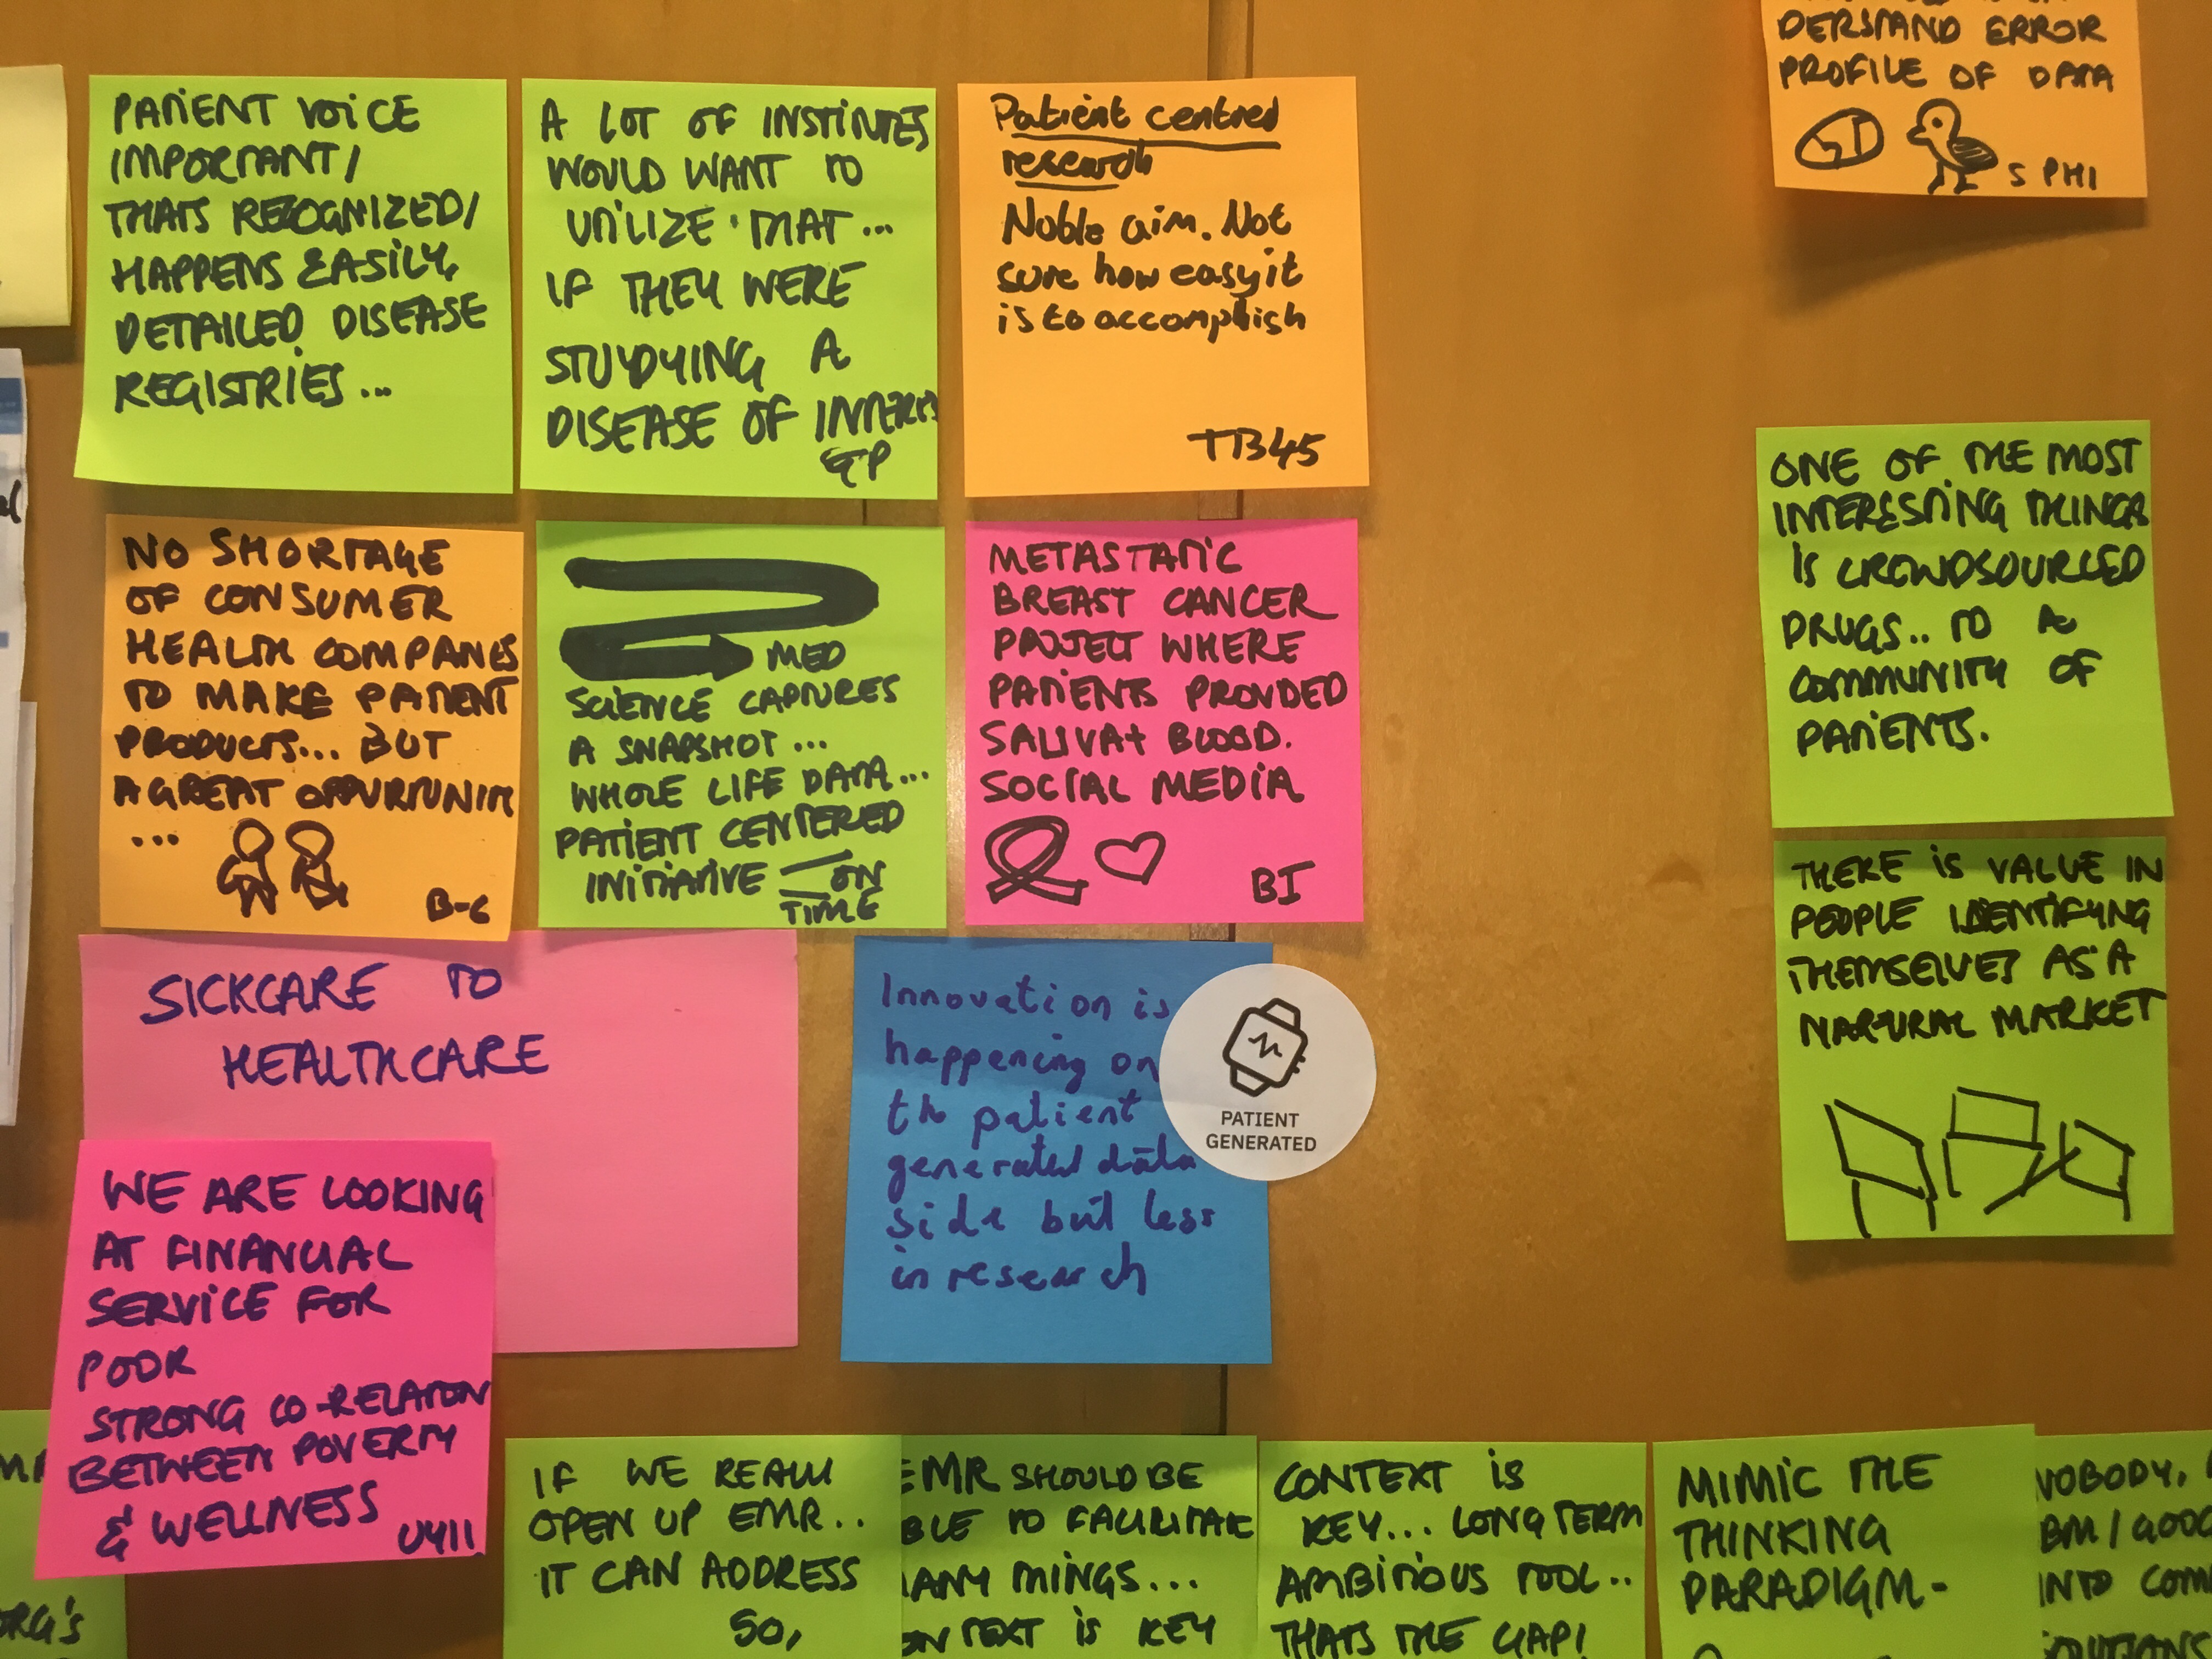 PATIENT VOICE
IMPORTANT/
THATS RECOGNIZED/
HAPPENS EASILY,
DETAILED DISEASE
REGISTRIES...
A LOT OF INSTITUTES
WOULD WANT TO
UTILIZE THAT...
IF THEY WERE
STUDYING A
DISEASE OF
GP
Patient centred
research
Noble aim. Not
sure how easy it
is to accomplish
TB45
DERSTAND ERROR
PROFILE OF DATA
S PHI
NO SHORTAGE
OF CONSUMER
HEALTH COMPANIES
TO MAKE PATIENT
PRODUCTS... BUT
A GREAT OPPURTUNITY
...
B-6
MED
SCIENCE CAPTURES
A SNAPSHOT...
WHOLE LIFE DATA...
PATIENT CENTERED
INITIATIVE - ON
TIME
METASTATIC
BREAST CANCER
PROJECT WHERE
PATIENTS PROVIDED
SALIVA + BLOOD.
SOCIAL MEDIA
BI
ONE OF THE MOST
INTERESTING THINGS
IS CROWDSOURCED
DRUGS.. TO A
COMMUNITY OF
PATIENTS.
THERE IS VALUE IN
PEOPLE IDENTIFYING
THEMSELVES AS A
NATURAL MARKET
SICKCARE TO
HEALTHCARE
Innovation is
happening on
the patient
generated data
side but less
in research
PATIENT
GENERATED
WE ARE LOOKING
AT FINANCIAL
SERVICE FOR
POOR
STRONG CO-RELATION
BETWEEN POVERTY
& WELLNESS
U411
ORG's
IF WE REALLY
OPEN UP EMR..
IT CAN ADDRESS
SO,
EMR SHOULD BE
BLE TO FACILITATE
MANY THINGS...
ONTEXT IS KEY
CONTEXT IS
KEY... LONG TERM
AMBITIOUS TOOL..
THATS THE GAP!
MIMIC THE
THINKING
PARADIGM-
NOBODY,
BM/GOOG
INTO COM